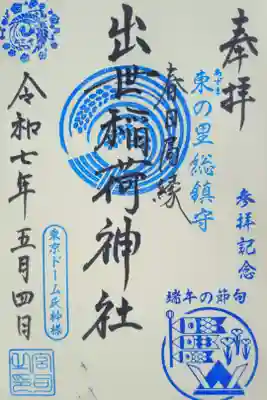 奉拝
参拝記念
東の里総鎮守
あずま
春日局縁
出世稲荷神社
令和七年五月四日
東京ドーム氏神様
端午の節句
宮司之印